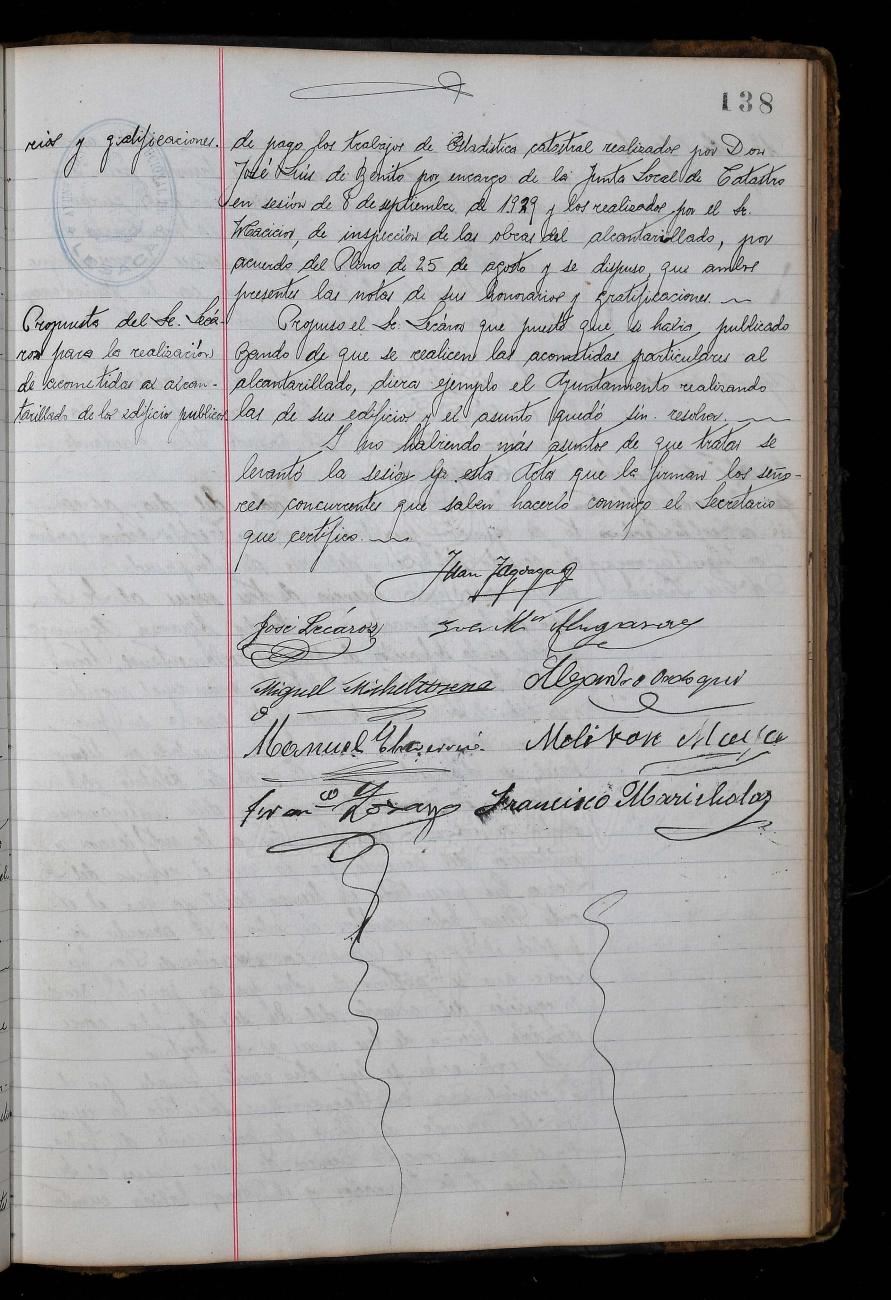 138
rios y gratificaciones.
de pago los trabajos de Estadística catastral realizados por Don
José Luís de Benito por encargo de la Junta Local de Catastro
en sesión de 8 de septiembre de 1929 y los realizados por el Sr.
de inspección de las obras del alcantarillado, por
acuerdo del Pleno de 25 de agosto y se dispuso, que ambos
presentes las notas de sus honorarios y gratificaciones.
Propuesta del Sr. Lecá-
ros para la realización
de acometidas al alcan-
tarillado de los edificio publicos
Propuso el Sr. Lecáros que puesto que se había publicado
Bando de que se realicen las acometidas particulares al
alcantarillado, diera ejemplo el Ayuntamiento realizando
las de sus edificios y el asunto quedó sin resolver.
Y no habiendo más asuntos de que tratar se
levantó la sesión y esta Acta que la firman los seño-
res concurrentes que saben hacerlo conmigo el Secretario
que certifico.
Juan
José Lecáros
Miguel Micheltorena
Manuel
Francisco Marichalar